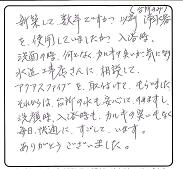 新築して数年ですがつい以前浄水器
を使用していましたが、入浴時、
洗面の時、何となくカルキ臭いが気になり
水道工事店さんに相談して、
アクアスファイブを取り付けてもらいました
それからは、台所の水も安心して、のめますし、
洗顔時、入浴時も、カルキの臭いもなく
毎日、快適に、すごしています。
ありがとうございました。